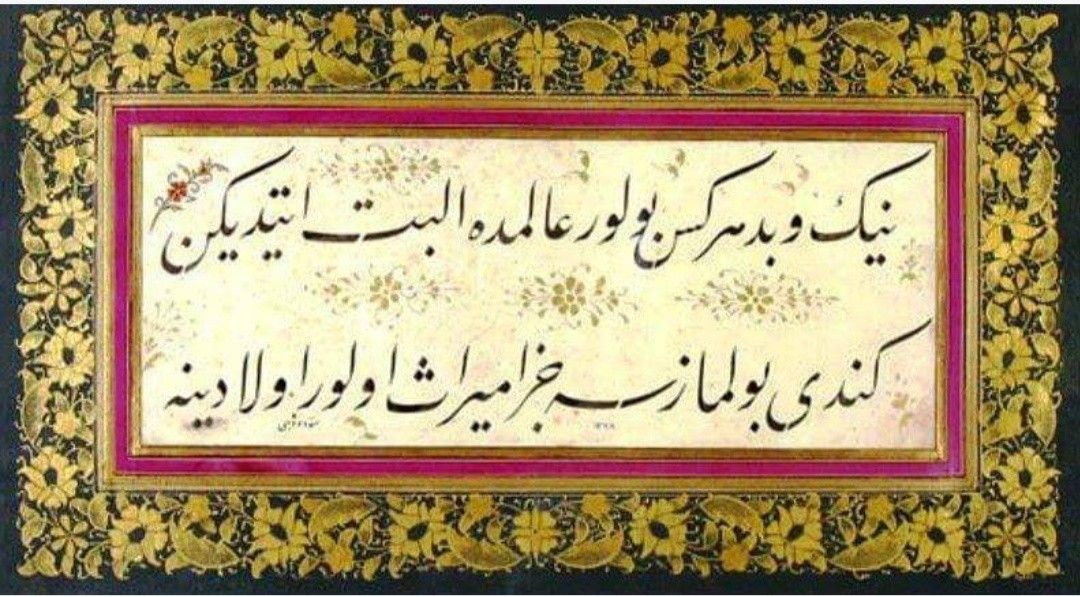 نيك و بد هركس بولور عالمده البت ايتديكن
كندى بولمازسه جزا ميراث اولور اولادينه